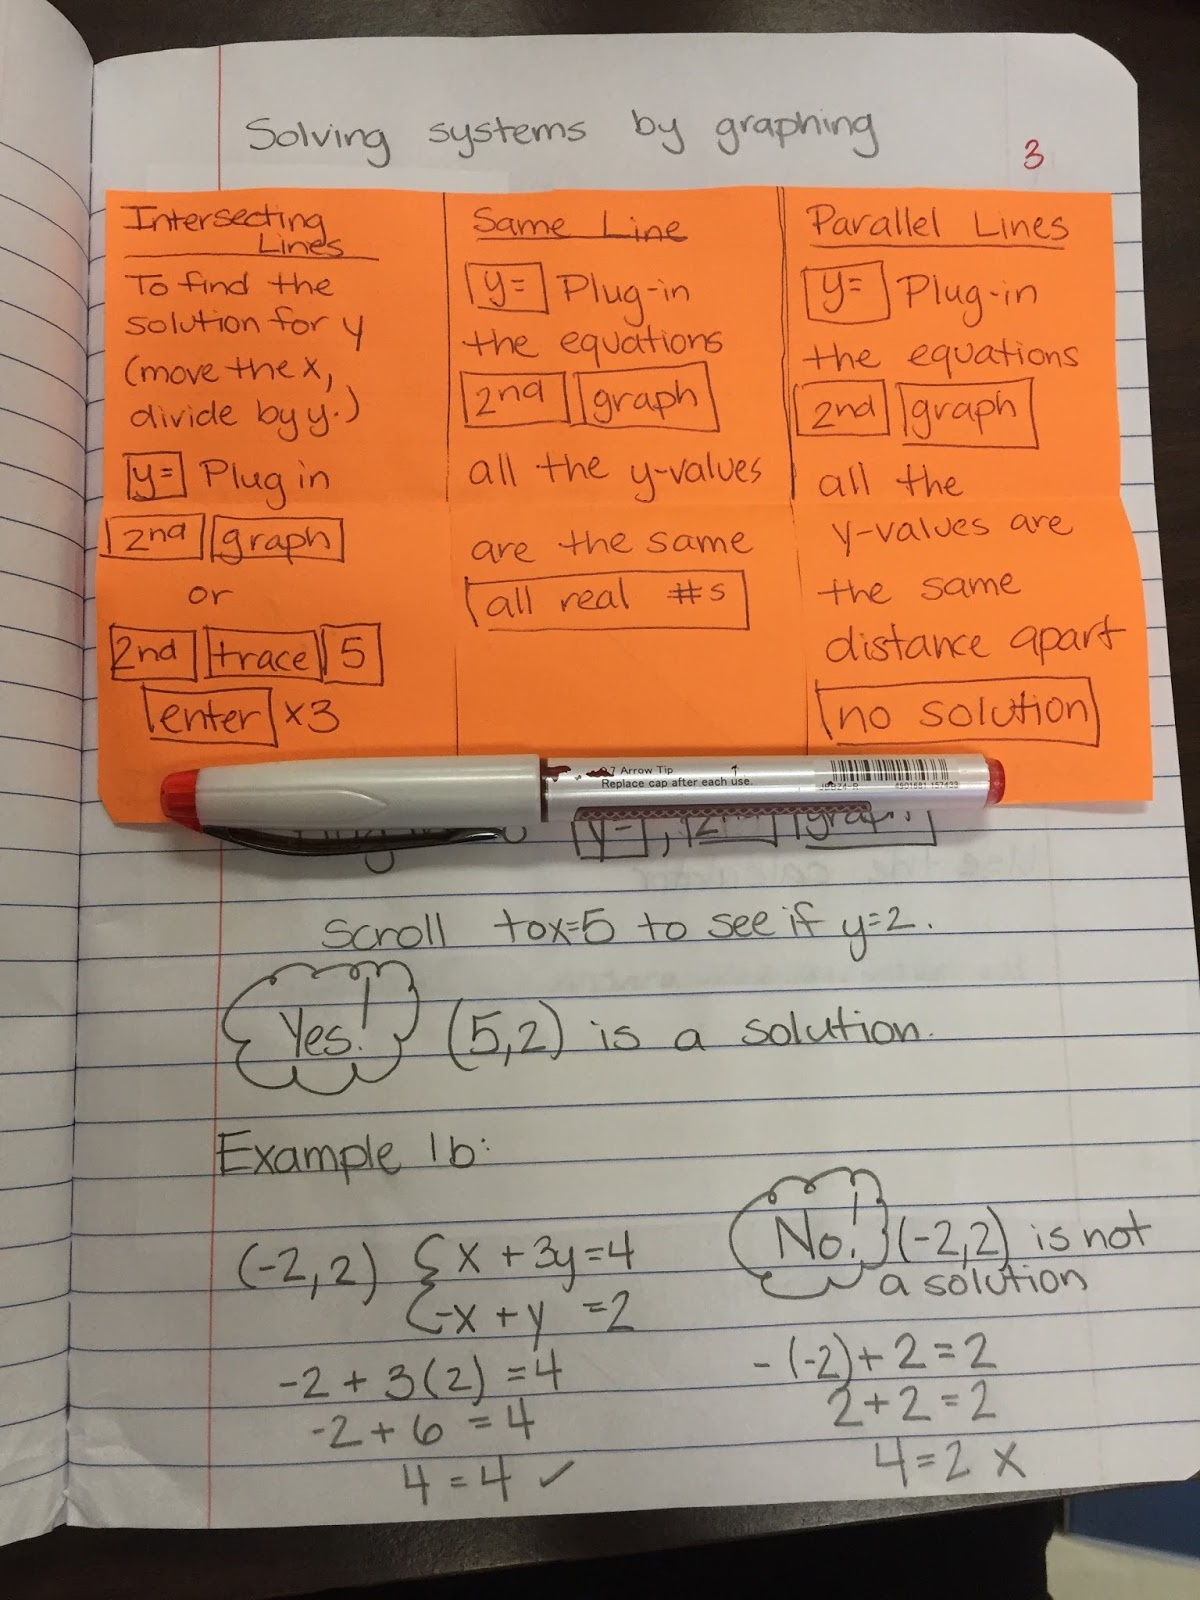 Solving systems by graphing
3
Intersecting
Lines
To find the
solution for y
(move the x,
divide by y.)
y= Plug in
2nd graph
or
2nd trace 5
enter x3
Same Line
y= Plug-in
the equations
2nd graph
all the y-values
are the same
all real #s
Parallel Lines
y= Plug-in
the equations
2nd graph
all the
y-values are
the same
distance apart
no solution
Arrow Tip
Replace cap after each use.
y= , graph
Scroll to x=5 to see if y=2.
Yes! (5,2) is a solution.
Example 1b:
(-2, 2) { x + 3y = 4
-x + y = 2
-2 + 3(2) = 4
-2 + 6 = 4
4 = 4 ✓
No! (-2,2) is not
a solution
-(-2) + 2 = 2
2 + 2 = 2
4 = 2 x